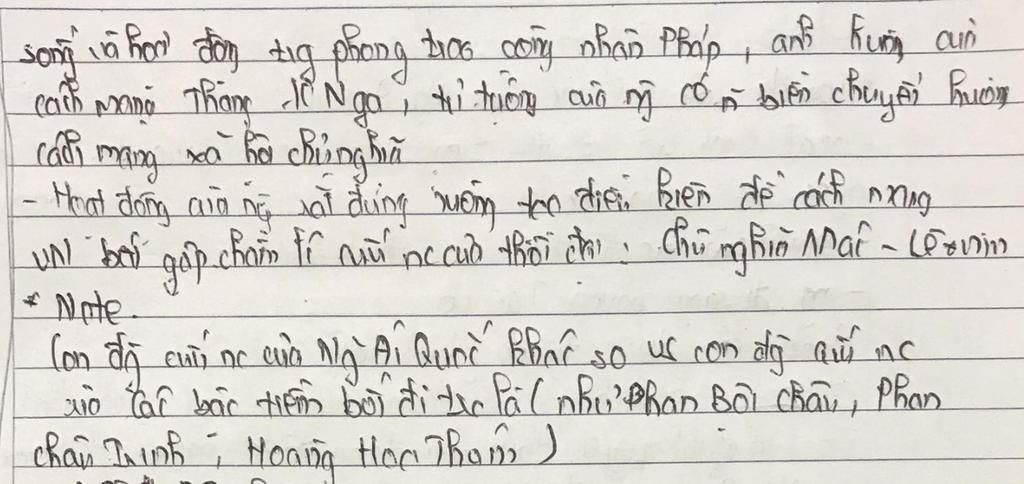 sống và hoạt động tg phong trào công nhân Pháp, ảnh hưởng của
cách mạng Tháng 10 Nga, tư tưởng của ng có n biến chuyển hướng
cách mạng xã hội chủ nghĩa
- Hoạt động của ng đúng hướng tạo điều kiện để cách mạng
VN bắt gặp chân lí cứu nc của thời đại: Chủ nghĩa Mác - Lênin
* Note.
Con đg cứu nc của Ng Ái Quốc khác so vs con đg cứu nc
của các bậc tiền bối đi trc là (như Phan Bội Châu, Phan
Châu Trinh, Hoàng Hoa Thám)